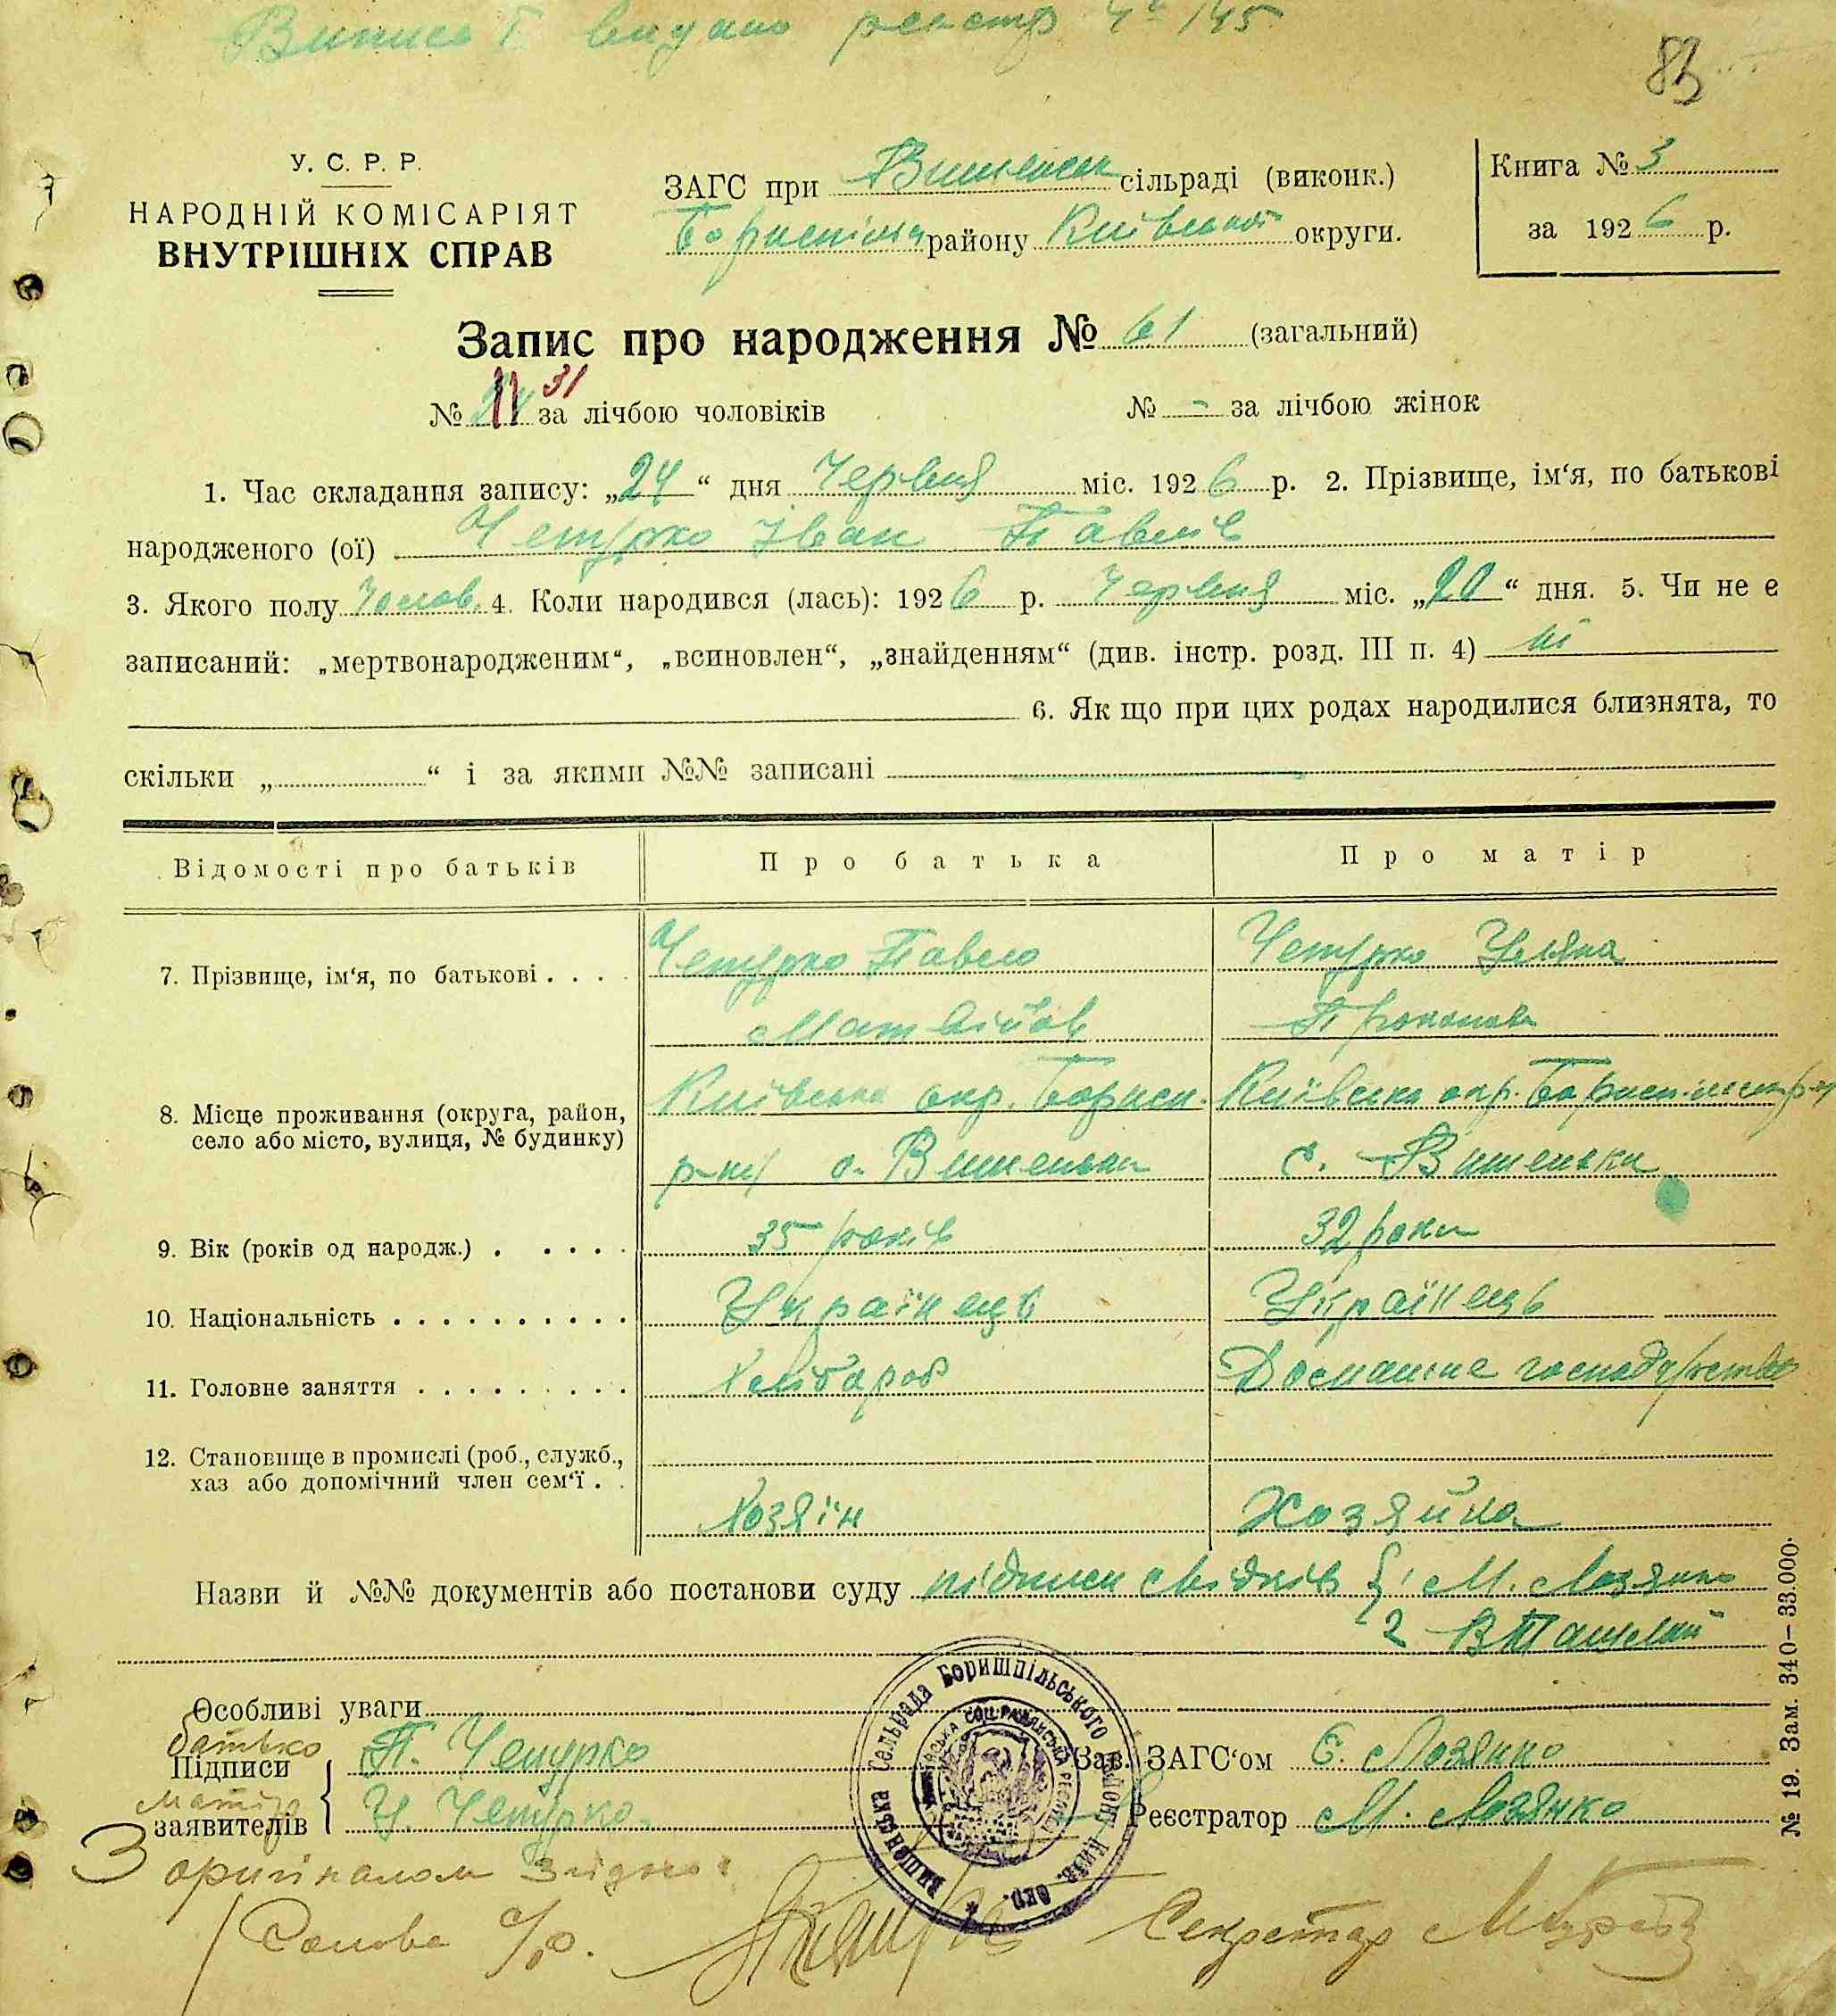 Випись видано реєстр № 145
83
У. С. Р. Р.
НАРОДНІЙ КОМІСАРІЯТ
ВНУТРІШНІХ СПРАВ
ЗАГС при Вишенськ сільраді (виконк.)
району Київської округи.
Книга № 3
за 1926 р.
Запис про народження № 61 (загальний)
№ 31 за лічбою чоловіків № - за лічбою жінок
1. Час складання запису: „24“ дня Червня міс. 1926 р. 2. Прізвище, ім‘я, по батькові
народженого (ої) Чепурко Іван Павлів
3. Якого полу Чолов. 4. Коли народився (лась): 1926 р. Червня міс. „20“ дня. 5. Чи не є
записаний: „мертвонародженим“, „всиновлен“, „знайденням“ (див. інстр. розд. III п. 4) ні
6. Як що при цих родах народилися близнята, то
скільки „ “ і за якими №№ записані
Відомості про батьків Про батька Про матір
7. Прізвище, ім‘я, по батькові . . . . Чепурко Павло Чепурко Уляна
Матвійов Прокопова
8. Місце проживання (округа, район, село або місто, вулиця, № будинку) Київська окр. Борисп. Київська окр. Бориспільськ р-ну
р-ну с. Вишеньки с. Вишеньки
9. Вік (років од народж.) . . . . . 35 років 32 роки
10. Національність . . . . . . . . . . Українець Українець
11. Головне заняття . . . . . . . . . Хлібароб Домашне господарство
12. Становище в промислі (роб., служб.,
хаз або допомічний член сем‘ї . . Хозяїн Хозяйка
Назви й №№ документів або постанови суду підписи свідків { 1 М. Лозянко
2 В
Особливі уваги
батько
Підписи П. Чепурко Зав. ЗАГС‘ом Є. Лозянко
заявителів У. Чепурко. Реєстратор М. Лозянко
Вишенська Сельрада Боришпільського району Київ. окр.
З оригіналом згідно:
Голова с/р. Секретар
№ 19. Зам. 340–33.000.